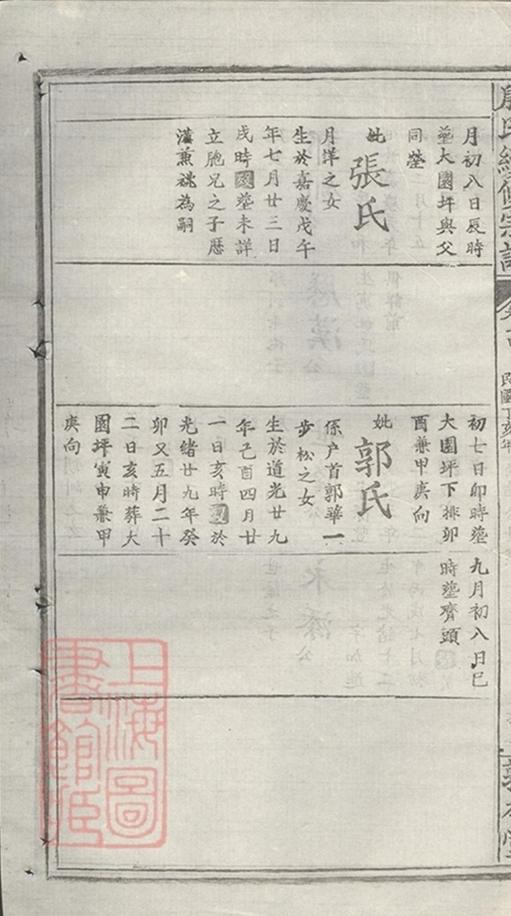 月初八日辰時
塟大園坪與父
同塋
妣
張氏
月洋之女
生於嘉慶戊午
年七月廿三日
戌時
塟未詳
立胞兄之子歷
漢兼祧為嗣
初七日卯時塟
大園坪下排卯
酉兼甲庚向
妣
郭氏
係户首郭華一
步松之女
生於道光廿九
年己酉四月廿
一日亥時
於
光緒廿九年癸
卯又五月二十
二日亥時葬大
園坪寅申兼甲
庚向
九月初八日巳
時塟齊頭
民國丁亥年
上海圖
書館藏